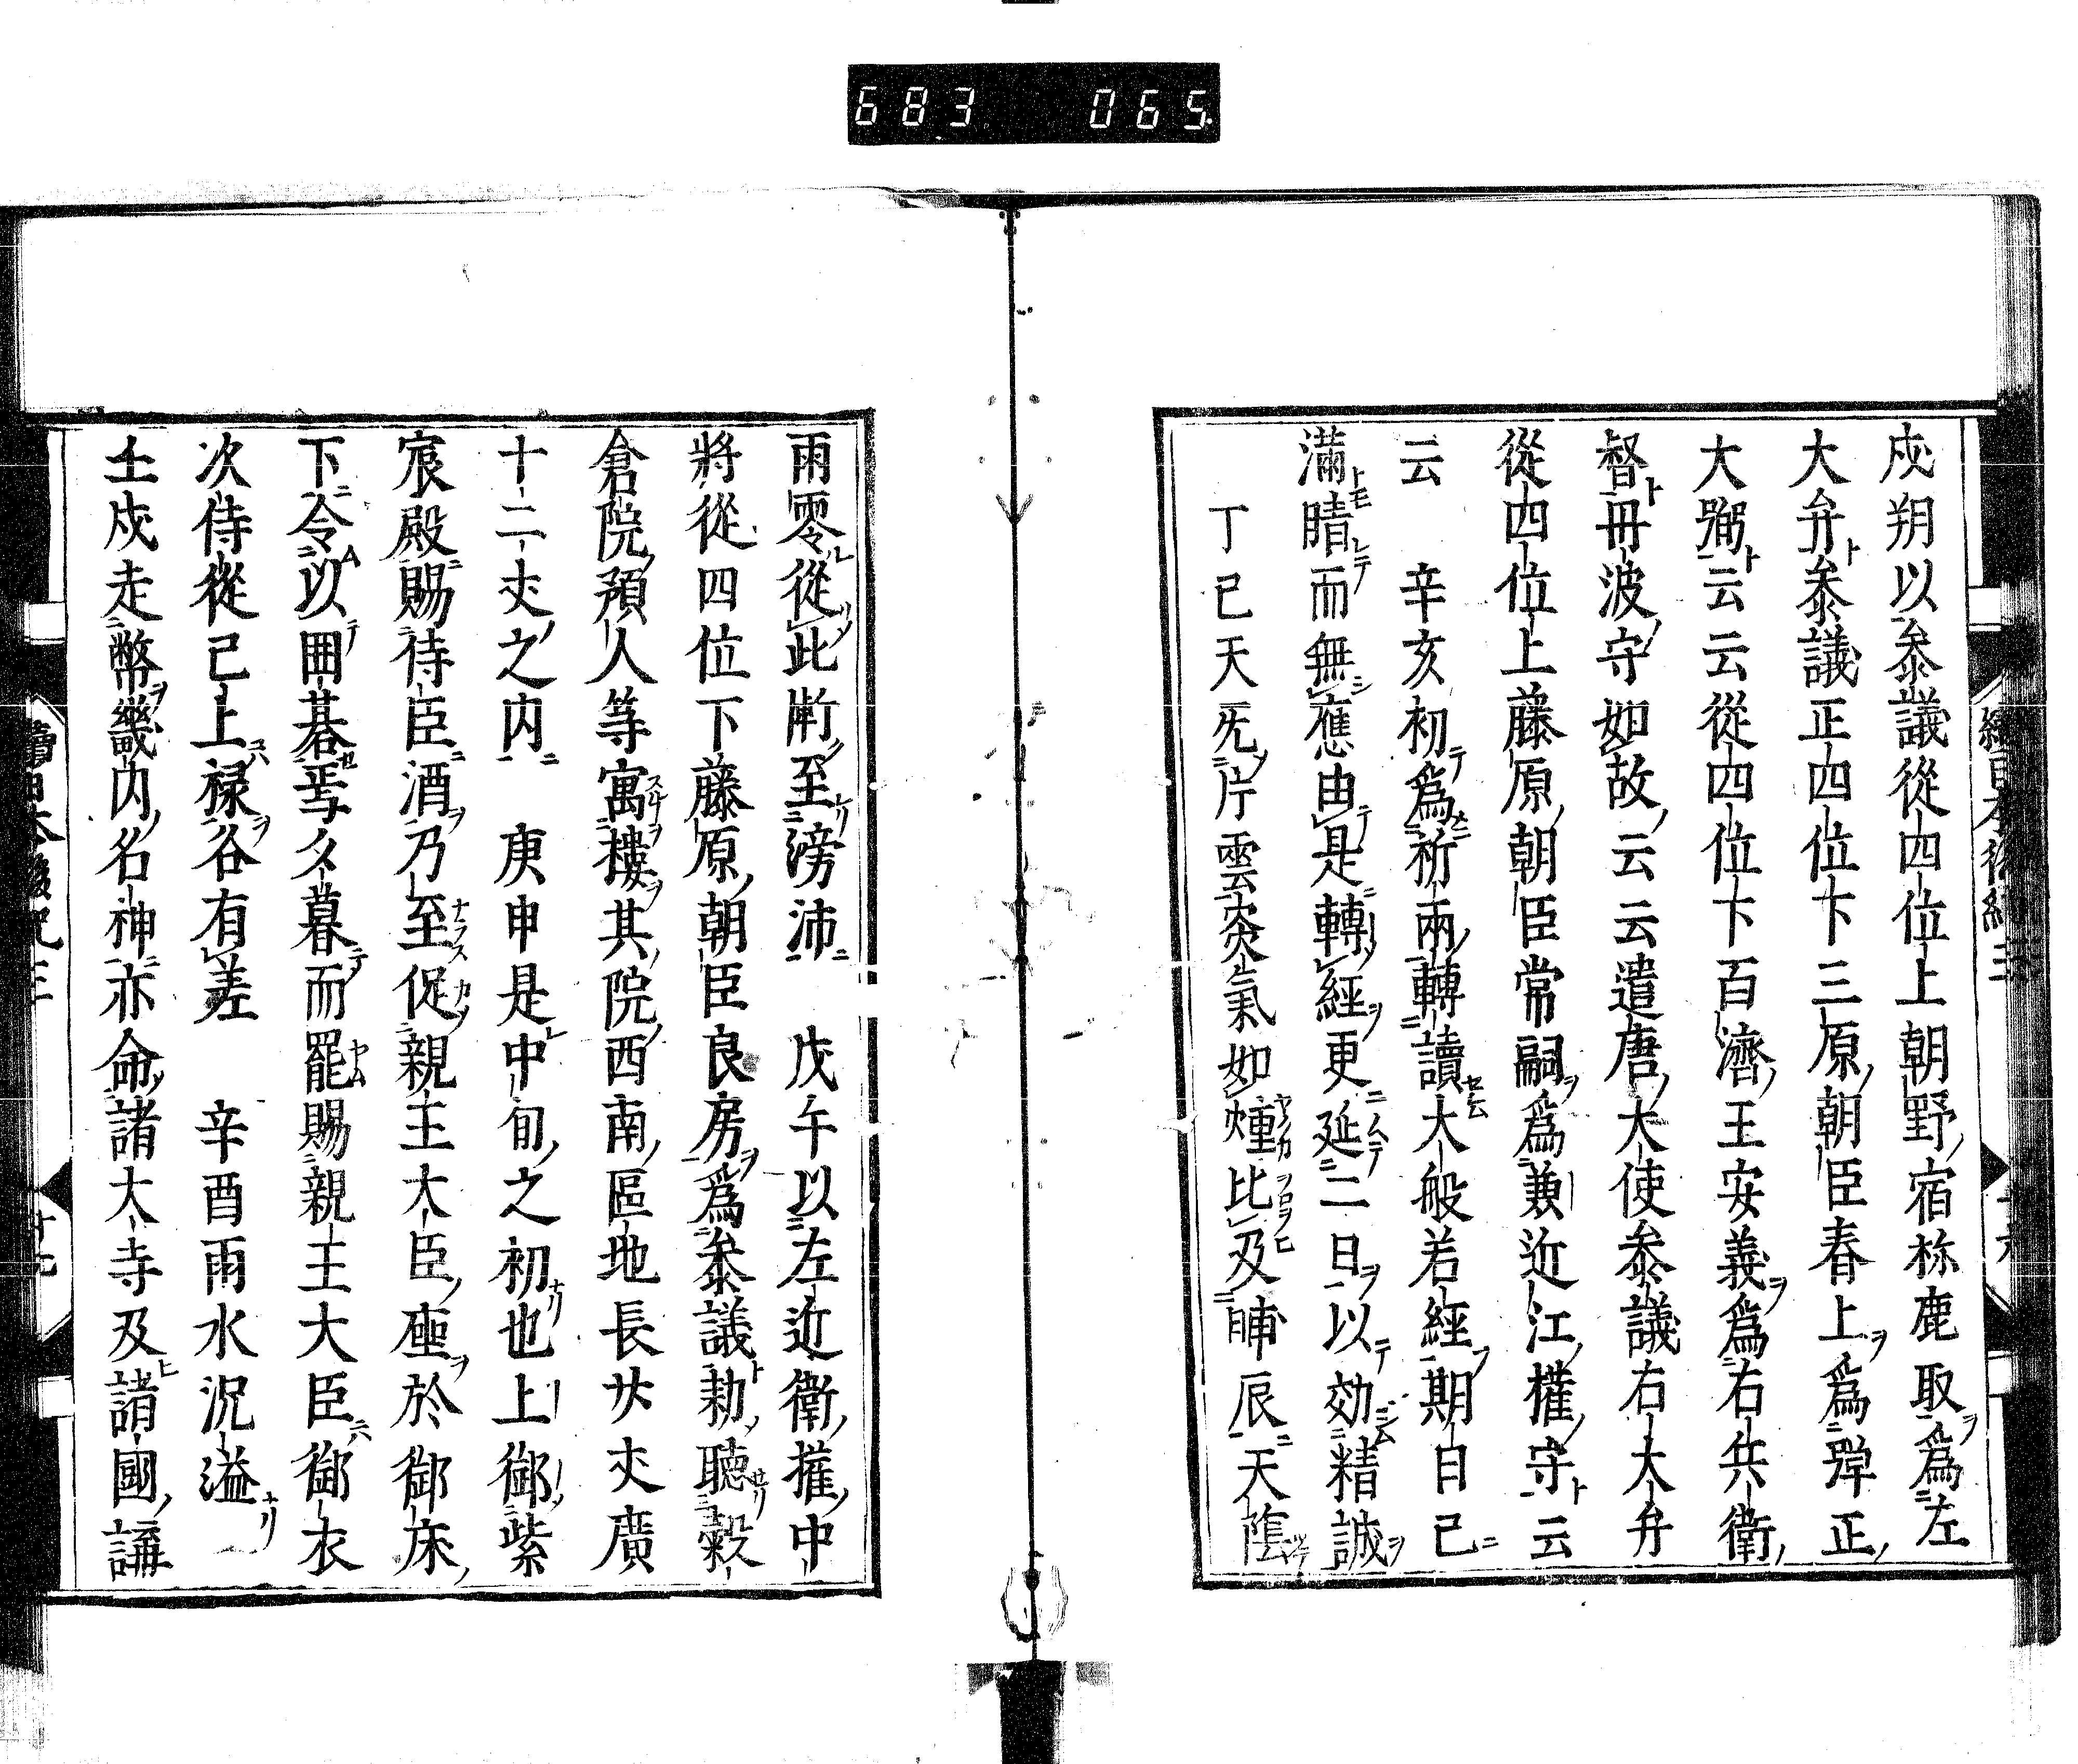 683 065
戌朔以叅議從四位上朝野宿祢鹿取爲左
大弁叅議正四位下三原朝臣春上爲弾正
大弼云云從四位下百濟王安義爲右兵衛
督丹波守如故云云遣唐大使叅議右大弁
從四位上藤原朝臣常嗣爲兼近江權守云
云　辛亥初爲祈雨轉讀大般若經期日已
滿晴而無應由是轉經更延二日以効精誠
丁巳天无片雲炎氣如煙比及晡辰天陰
雨零從此澍至滂沛　戊午以左近衛權中
將從四位下藤原朝臣良房爲叅議勅聽穀
倉院預人等寓樓其院西南區地長廿丈廣
十二丈之内　庚申是中旬之初也上御紫
宸殿賜侍臣酒乃至促親王大臣座於御床
下令以囲碁焉久暮而罷賜親王大臣御衣
次侍從已上禄各有差　辛酉雨水況溢
壬戌走幣畿内名神亦命諸大寺及諸國講